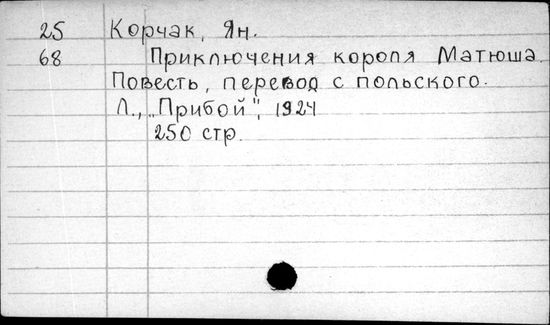 25 Корчак, Ян.
68 Приключения короля Матюша.
Повесть, перевод с польского.
Л., „Прибой", 1924
250 стр.